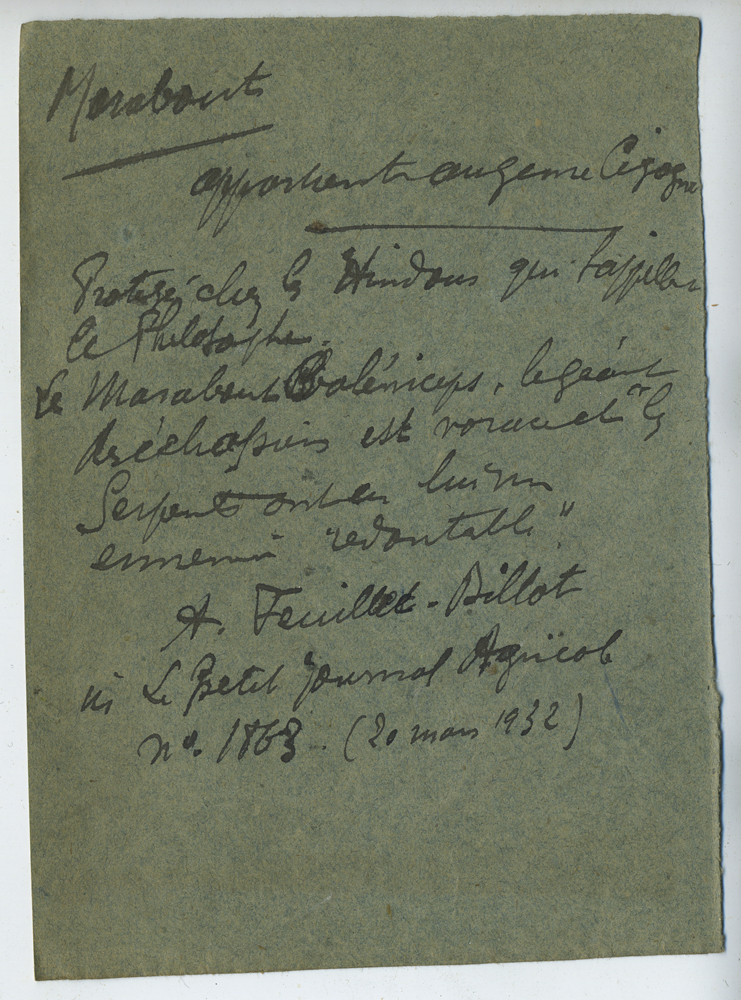 Marabouts
appartient au genre Cigogne
Protégé chez les Hindous qui l'appellent
le Philosophe.
Le Marabout Baléniceps, le géant
des échassiers est vorace et "les
Serpents ont en lui un
ennemi redoutable"
A. Feuillet-Billot
in Le Petit Journal Agricole
n° 1868 - (20 mars 1932)